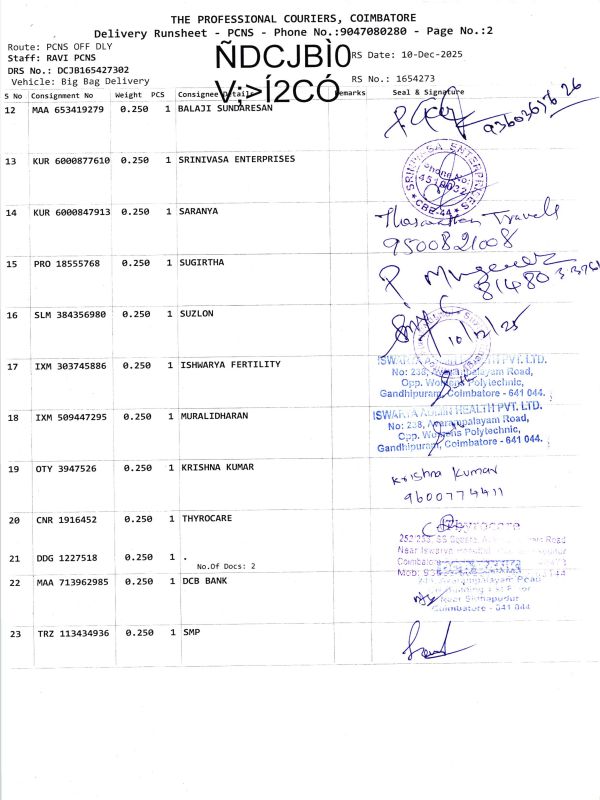 THE PROFESSIONAL COURIERS, COIMBATORE
Delivery Runsheet - PCNS - Phone No.:9047080280 - Page No.:2
Route: PCNS OFF DLY
Staff: RAVI PCNS
RS Date: 10-Dec-2025
DRS No.: DCJB165427302
Vehicle: Big Bag Delivery
RS No.: 1654273
ÑDCJBÌ0
V;>Í2CÓ
S No Consignment No Weight PCS Consignee Details Remarks Seal & Signature
12 MAA 653419279 0.250 1 BALAJI SUNDARESAN
13 KUR 6000877610 0.250 1 SRINIVASA ENTERPRISES
SRINIVASA ENTERPRISES
Phone No:
4519032
CBE-44
14 KUR 6000847913 0.250 1 SARANYA
Travels
9500821008
15 PRO 18555768 0.250 1 SUGIRTHA
16 SLM 384356980 0.250 1 SUZLON
10/12/25
17 IXM 303745886 0.250 1 ISHWARYA FERTILITY
ISWARYA HEALTH PVT. LTD.
No: 238, Avarampalayam Road,
Opp. Womens Polytechnic,
Gandhipuram, Coimbatore - 641 044.
18 IXM 509447295 0.250 1 MURALIDHARAN
ISWARYA HEALTH PVT. LTD.
No: 238, Avarampalayam Road,
Opp. Womens Polytechnic,
Gandhipuram, Coimbatore - 641 044.
19 OTY 3947526 0.250 1 KRISHNA KUMAR
Krishna Kumar
9600774411
20 CNR 1916452 0.250 1 THYROCARE
Thyrocare
21 DDG 1227518 0.250 1 .
No.Of Docs: 2
22 MAA 713962985 0.250 1 DCB BANK
Coimbatore - 641 044
23 TRZ 113434936 0.250 1 SMP